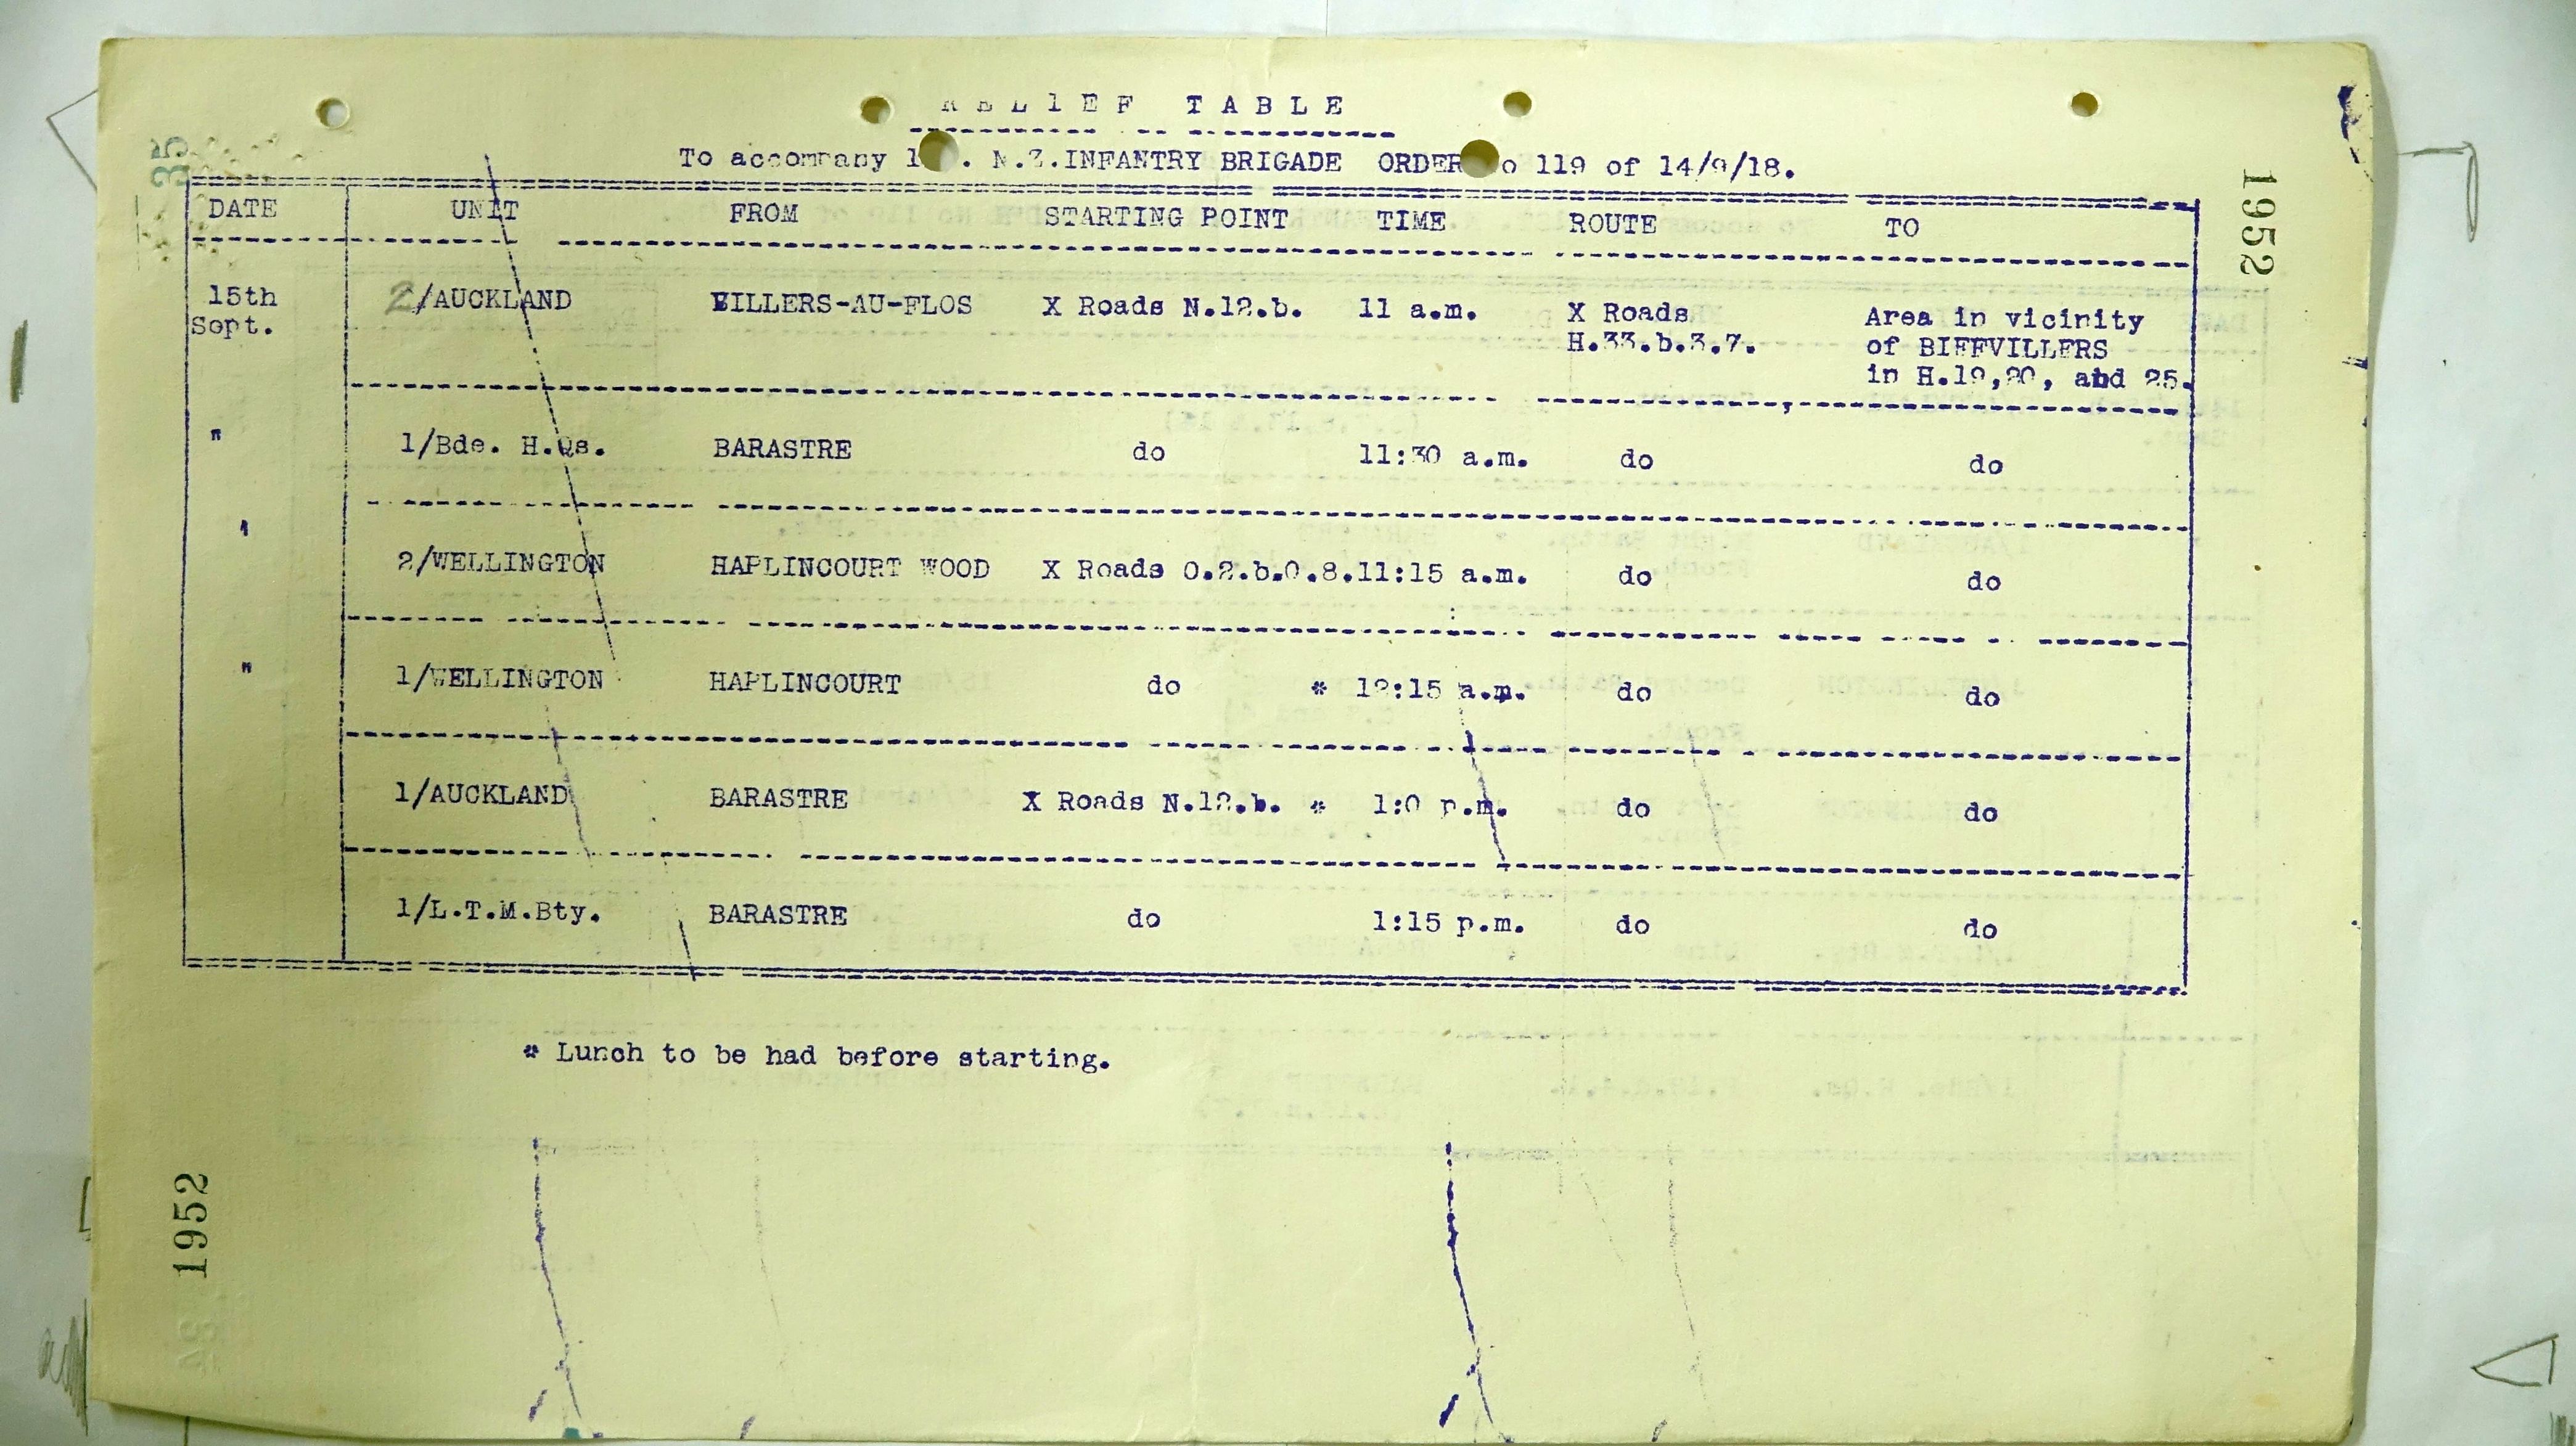 RELIEF TABLE
To accompany 1 . N.Z.INFANTRY BRIGADE ORDER o 119 of 14/9/18.
DATE UNIT FROM STARTING POINT TIME ROUTE TO
15th Sept. 2/AUCKLAND VILLERS-AU-FLOS X Roads N.12.b. 11 a.m. X Roads H.33.b.3.7. Area in vicinity of BIEFVILLERS in H.19,20, abd 25.
" 1/Bde. H.Qs. BARASTRE do 11:30 a.m. do do
" 2/WELLINGTON HAPLINCOURT WOOD X Roads O.2.b.0.8. 11:15 a.m. do do
" 1/WELLINGTON HAPLINCOURT do * 12:15 a.m. do do
1/AUCKLAND BARASTRE X Roads N.12.b. * 1:0 p.m. do do
1/L.T.M.Bty. BARASTRE do 1:15 p.m. do do
* Lunch to be had before starting.
1952
1952
35